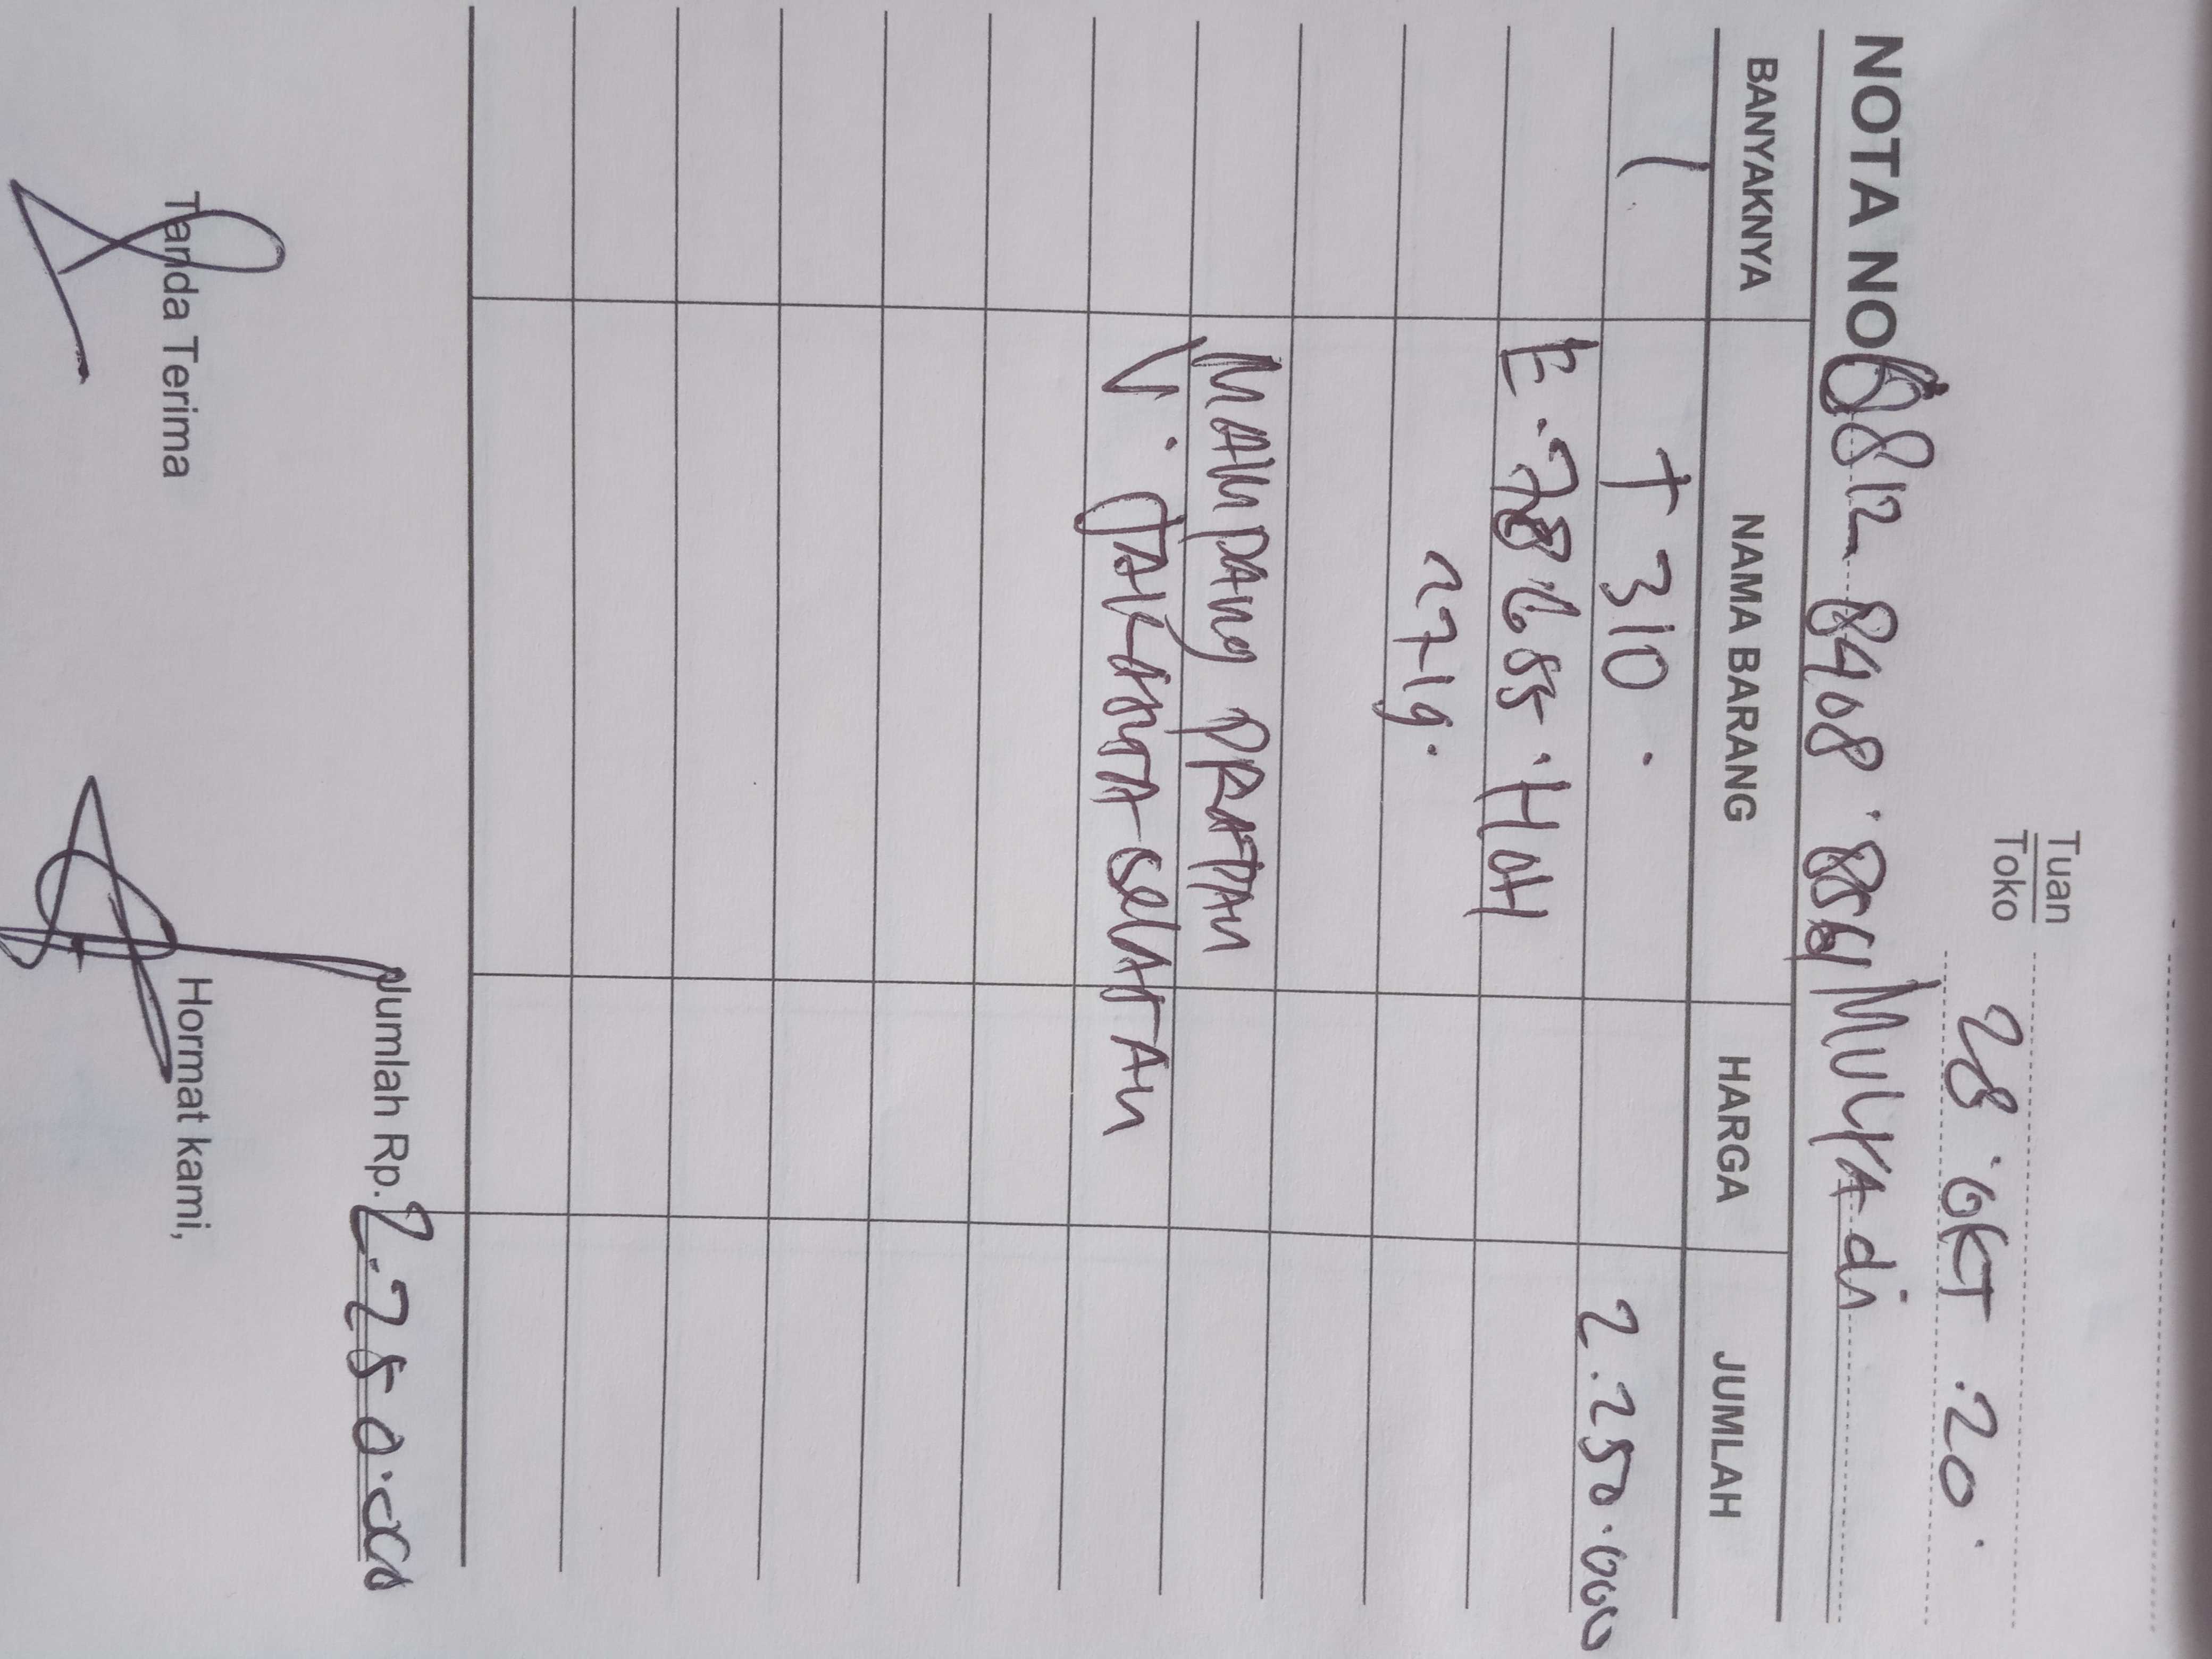 28 OKT . 20 .
Tuan
Toko
NOTA NO 0812 8408 . 8561 MULYAdi
BANYAKNYA NAMA BARANG HARGA JUMLAH
1 T 310 . 2.250.000
E . 78 6 55 . HOH
2719 .
MAMPANg PRAPAN
V . JAKARTA SELATAN
Jumlah Rp. 2.250.000
Tanda Terima Hormat kami,